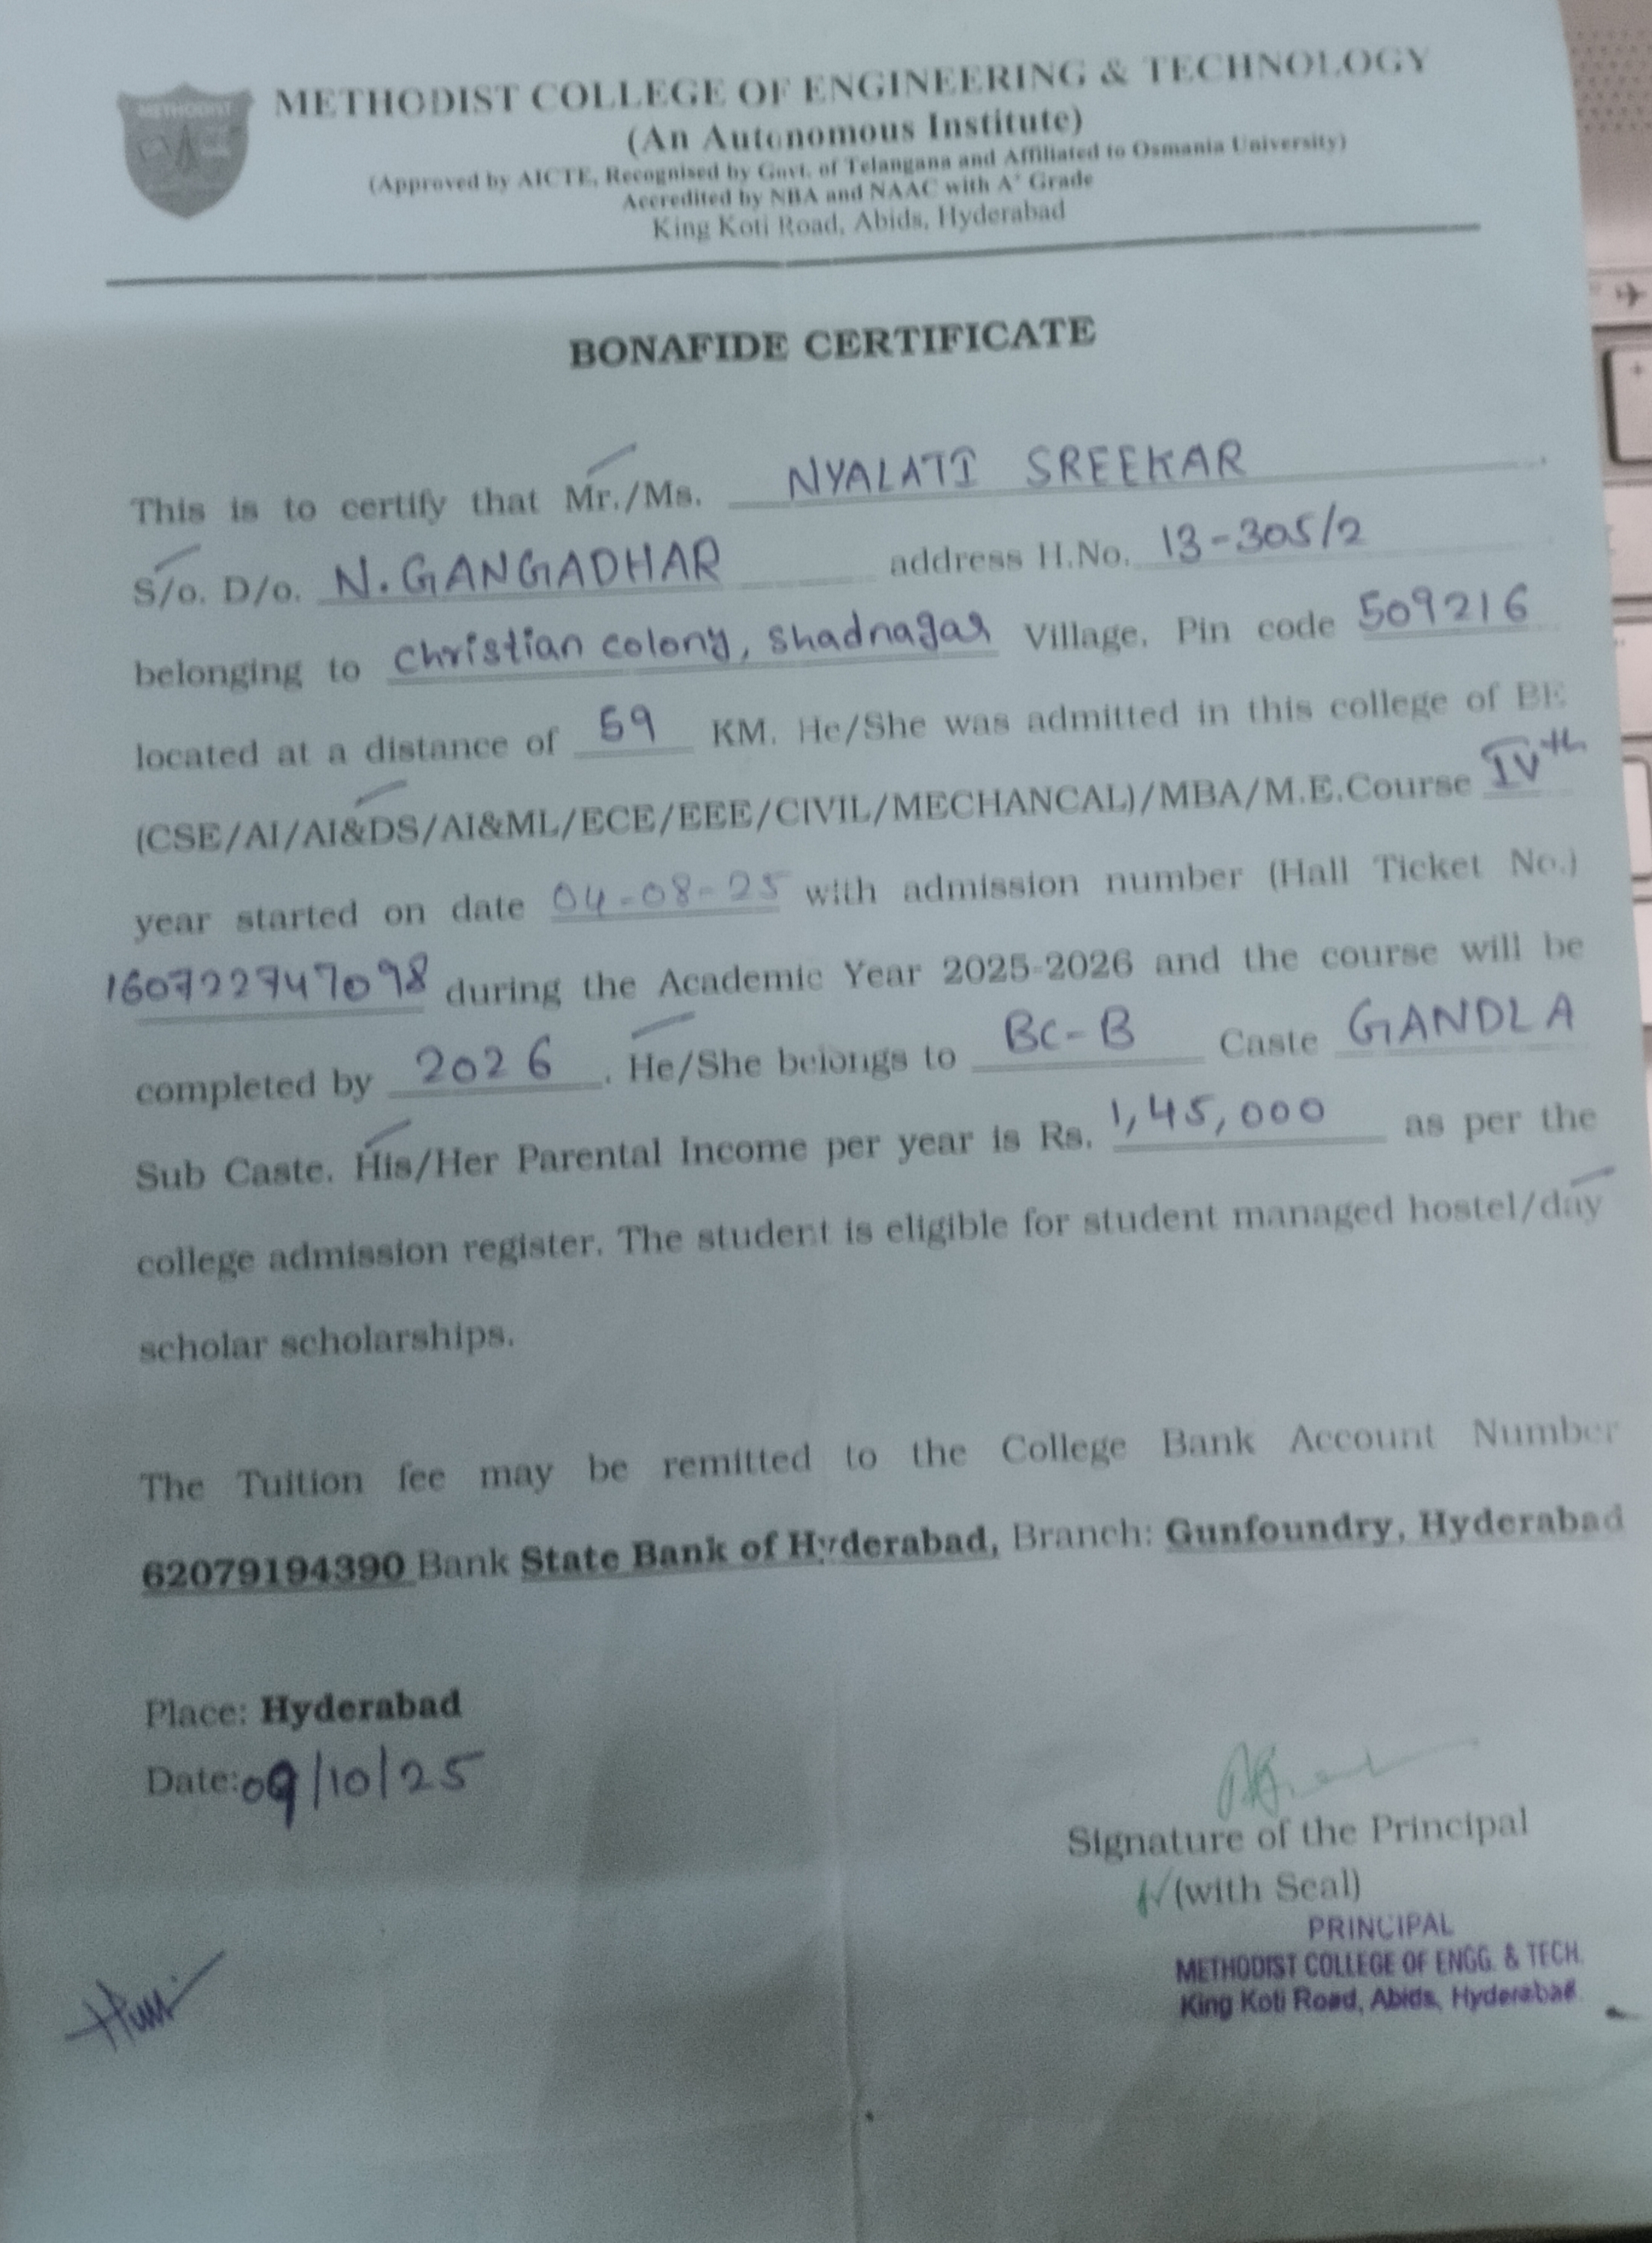 METHODIST
METHODIST COLLEGE OF ENGINEERING & TECHNOLOGY
(An Autonomous Institute)
(Approved by AICTE, Recognised by Govt. of Telangana and Affiliated to Osmania University)
Accredited by NBA and NAAC with A+ Grade
King Koti Road, Abids, Hyderabad
BONAFIDE CERTIFICATE
This is to certify that Mr./Ms. NYALATI SREEKAR
S/o. D/o. N.GANGADHAR address H.No. 13-305/2
belonging to christian colony, shadnagar Village, Pin code 509216
located at a distance of 59 KM. He/She was admitted in this college of BE
(CSE/AI/AI&DS/AI&ML/ECE/EEE/CIVIL/MECHANCAL)/MBA/M.E.Course IVth
year started on date 04-08-25 with admission number (Hall Ticket No.)
160722747098 during the Academic Year 2025-2026 and the course will be
completed by 2026. He/She belongs to BC-B Caste GANDLA
Sub Caste. His/Her Parental Income per year is Rs. 1,45,000 as per the
college admission register. The student is eligible for student managed hostel/day
scholar scholarships.
The Tuition fee may be remitted to the College Bank Account Number
62079194390 Bank State Bank of Hyderabad, Branch: Gunfoundry, Hyderabad
Place: Hyderabad
Date: 09/10/25
Signature of the Principal
(with Seal)
PRINCIPAL
METHODIST COLLEGE OF ENGG. & TECH.
King Koti Road, Abids, Hyderabad.